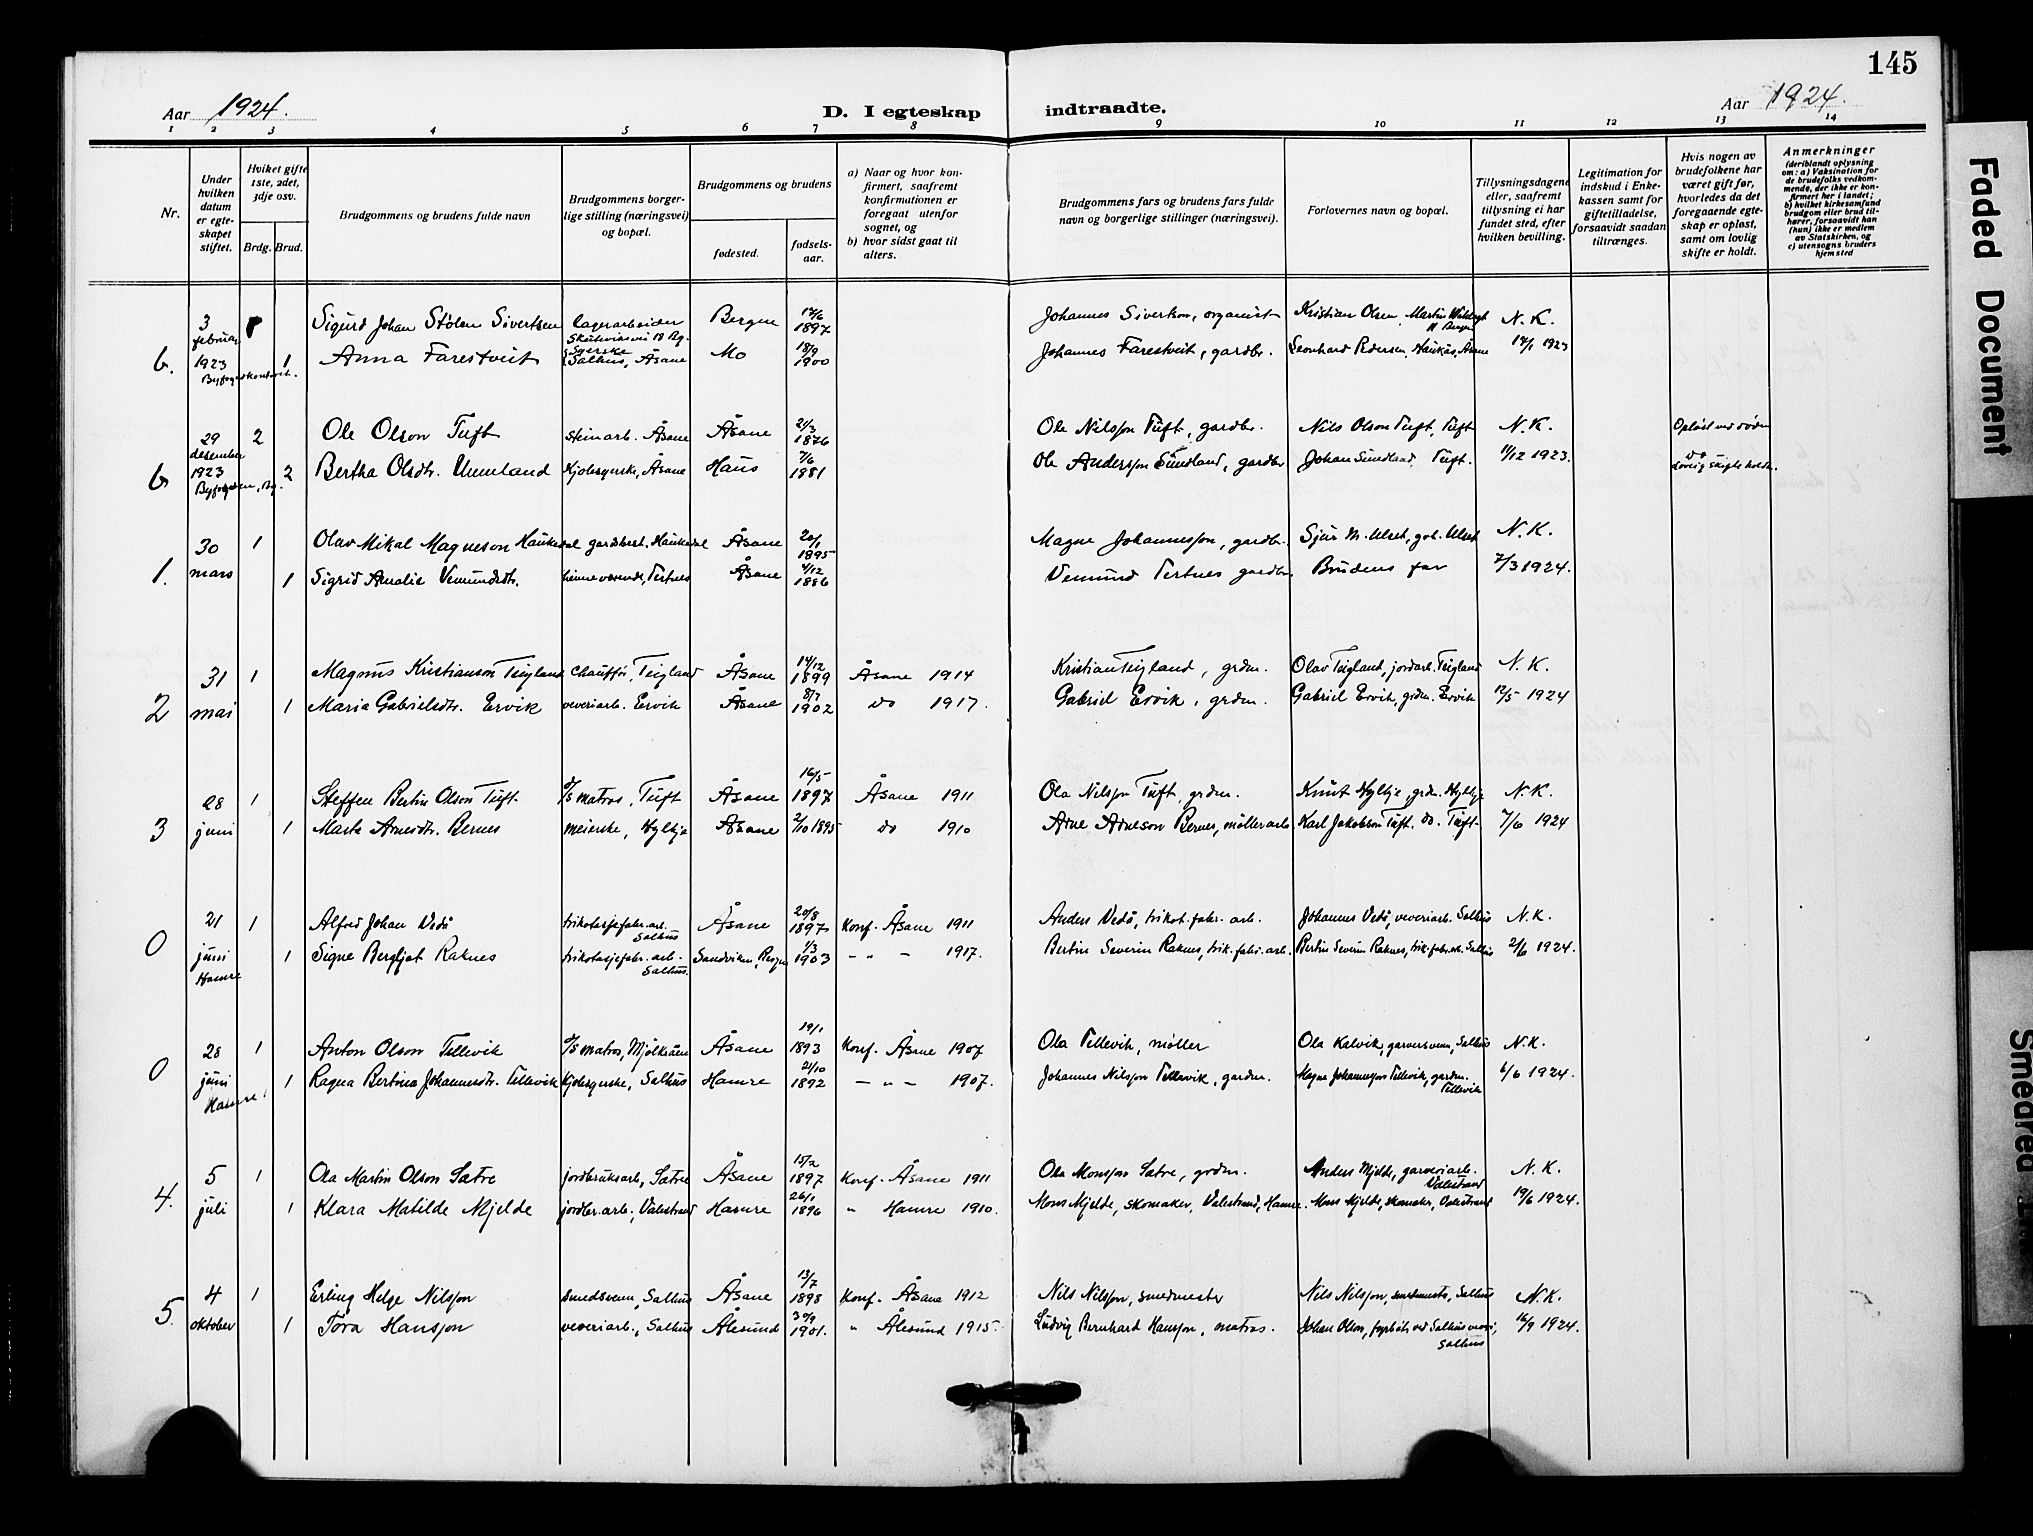 145
Aar 1924. D. I egteskap indtraadte. Aar 1924.
1 2 3 4 5 6 7 8 9 10 11 12 13 14
Nr.
Under hvilken datum er egteskapet stiftet.
Hviket gifte 1ste, 2det, 3dje osv.
Brdg. Brud.
Brudgommens og brudens fulde navn
Brudgommens borgerlige stilling (næringsvei) og bopæl.
Brudgommens og brudens
fødested.
fødselsaar.
a) Naar og hvor konfirmert, saafremt konfirmationen er foregaat utenfor sognet, og
b) hvor sidst gaat til alters.
Brudgommens fars og brudens fars fulde navn og borgerlige stillinger (næringsvei).
Forlovernes navn og bopæl.
Tillysningsdagene eller, saafremt tillysning ei har fundet sted, efter hvilken bevilling.
Legitimation for indskud i Enkekassen samt for giftetilladelse, forsaavidt saadan tiltrænges.
Hvis nogen av brudefolkene har været gift før, hvorledes da det foregaaende egteskap er opløst, samt om lovlig skifte er holdt.
Anmerkninger
(deriblandt oplysning om: a) Vaksination for de brudefolks vedkommende, der ikke er konfirmert her i landet; b) hvilket kirkesamfund brudgom eller brud tilhører, forsaavidt han (hun) ikke er medlem av Statskirken, og c) utensogns bruders hjemsted
3 februar Sigurd Johan Stølen Sivertsen lagerarbeider Bergen 1897 Johannes Sivertsen, organist Kristian Olsen, Martin N. K.
6. 1923 1 Anna Farestveit Syerske Salhus, Åsane Mo 18/9 1900 Johannes Farestveit, gardbr. Leonhard Pedersen, Haukås, Åsane 1923
29 desember 2 Ole Olson Tuft steinarb. Åsane Åsane 21/3 1876 Ole Nilsson Tuft, gardbr. Nils Olson Tuft, Tuft N.K. Opløst ved døden
6 1923 2 Bertha Olsdtr. Unneland Kjolesyerske, Åsane Haus 7/6 1881 Ole Andersson Sundland, gardbr Johan Sundland, Tuft. 11/12 1923. Lovlig skifte holdt.
30 1 Olav Mikal Magneson Haukedal gardbest. Haukedal Åsane 20/1 1895 Magne Johannesson, gardbr. Sjur M. Ulset, Ulset N. K.
1. mars 1 Sigrid Amalie Vemundsdtr. heimeverende, Tertnes Åsane 4/12 1886 Vemund Tertnes gardbr. Brudens far 7/3 1924.
31 1 Magnus Kristianson Teigland chauffør, Teigland Åsane 14/12 1899 Åsane 1914 Kristian Teigland, grdm. Olav Teigland, jordarb. Teigland N. K.
2 mai 1 Maria Gabrielsdtr. Ervik veveriarb. Ervik Åsane 8/7 1902 do 1917. Gabriel Ervik, grdm. Gabriel Ervik, grdm. Ervik 12/5 1924
28 1 Steffen Bertin Olson Tuft d/s matros, Tuft Åsane 16/5 1897 Åsane 1911 Ola Nilsson Tuft, grdm. Knut Hylkje, grdm. Hylkje N. K.
3 juni 1 Marta Arnesdtr. Bernes meierske, Hylkje Åsane 2/10 1895 do 1910 Arne Arneson Bernes, møllerarb. Karl Jakobson Tuft. do. Tuft. 7/6 1924
21 1 Alfred Johan Vedå trikotasjefabr. arb. Salhus Åsane 20/8 1897 Konf. Åsane 1911 Anders Vedå, trikot. fabr. arb. Johannes Vedå, veveriarb. Salhus N. K.
0 juni Hamre 1 Signe Bergljot Raknes trikotasjefabr. arb. Salhus. Sandviken, Bergen 1/3 1903 - " - 1917. Bertin Severin Raknes, trik. fabr. arb. Bertin Severin Raknes, trik. fabr. arb. Salhus 2/6 1924.
28 1 Anton Olson Tellevik d/s matros, Mjølkråen Åsane 19/1 1893 Konf. Åsane 1907 Ola Tellevik, møller Ola Kalvik, garversvenn, Salhus N. K.
0 juni Hamre 1 Ragna Bertina Johannesdtr. Tellevik Kjolesyerske, Salhus Hamre 21/10 1892 - " - 1907. Johannes Nilsson Tellevik, gardm. Magne Johannesson Tellevik, gardm. Tellevik 6/6 1924.
5 1 Ola Martin Olson Sætre jordbruksarb, Sætre Åsane 15/2 1897 Konf. Åsane 1911 Ola Monsson Sætre, grdm. Anders Mjelde, garveriarb. Valestrand N. K.
4. juli 1 Klara Matilde Mjelde jordbr. arb., Valestrand Hamre 26/1 1896 " Hamre 1910. Mons Mjelde, skomaker, Valestrand, Hamre. Mons Mjelde, skomaker, Valestrand 19/6 1924.
4 1 Erling Helge Nilsson smedsvenn, Salhus Åsane 13/7 1898 Konf. Åsane 1912 Nils Nilsson, smedmester Nils Nilsson, smedmester, Salhus N. K.
5. oktober 1 Tora Hansson veveriarb., Salhus Ålesund 30/9 1901. " Ålesund 1915. Ludvig Bernhard Hansson, matros. Johan Olson, fyrbøter ved Salhus veveri, Salhus 16/9 1924.
Faded Document